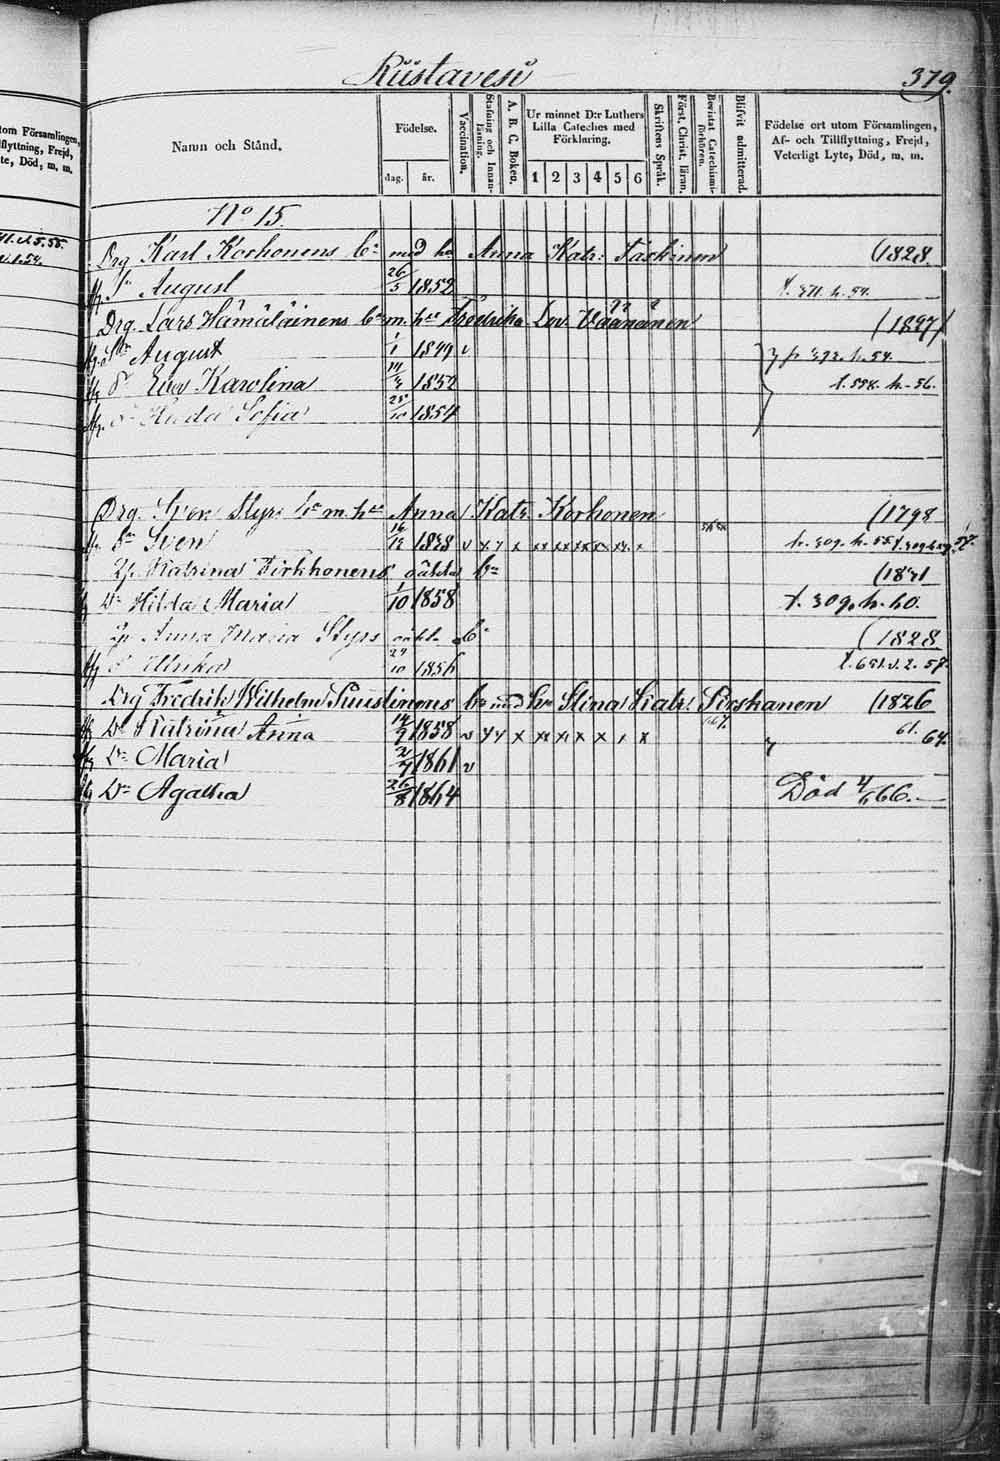 Rüstavesi
379.
tom Församlingen,
Tillflyttning, Frejd,
te, Död, m. m.
Namn och Stånd.
Födelse.
dag. år.
Vaccination.
Stafning och Innanläsning.
A. B. C. Boken.
Ur minnet D:r Luthers Lilla Cateches med Förklaring.
1 2 3 4 5 6
Skriftens Språk.
Först. Christ. läran.
Bevistat Catechismiförhören.
Blifvit admitterad.
Födelse ort utom Församlingen,
Af- och Tillflyttning, Frejd,
Veterligt Lyte, Död, m. m.
No 15.
Drg Karl Korhonens bn med hu Anna Katr: Taskinen (1828.
Sn August 26/5 1852 t. 311. h. 54.
Drg. Lars Hämäläinens bn m. hu Fredrika Lov. Väänänen (1827)
Sn August 1/1 1849 v
Dr Eva Karolina 1852 t. 558. h. 56.
Dr Hilda Sofia 25/10 1854
Drg. Sven Styrs bn m. hu Anna Katr. Korhonen (1798
Sn Sven 16/12 1838 v x x x xx xx xx xx x h. 309. h. 55.
Pig. Katrina Pirkhonens oäkta bn (1831
Dr Hilda Maria 1/10 1858 t. 309. h. 60.
Pig Anna Maria Styrs oäkt. b. (1828.
Dr Ulrika 29/10 1856
Drg Fredrik Wilhelm Puustinens bn med hu Stina Katr. Pirskanen (1826
Dr Katrina Anna 14/9 1858 v x x x xx x x x x x 61. 64.
Dr Maria 2/7 1861 v
Dr Agatha 26/8 1864 Död 4/6 66.